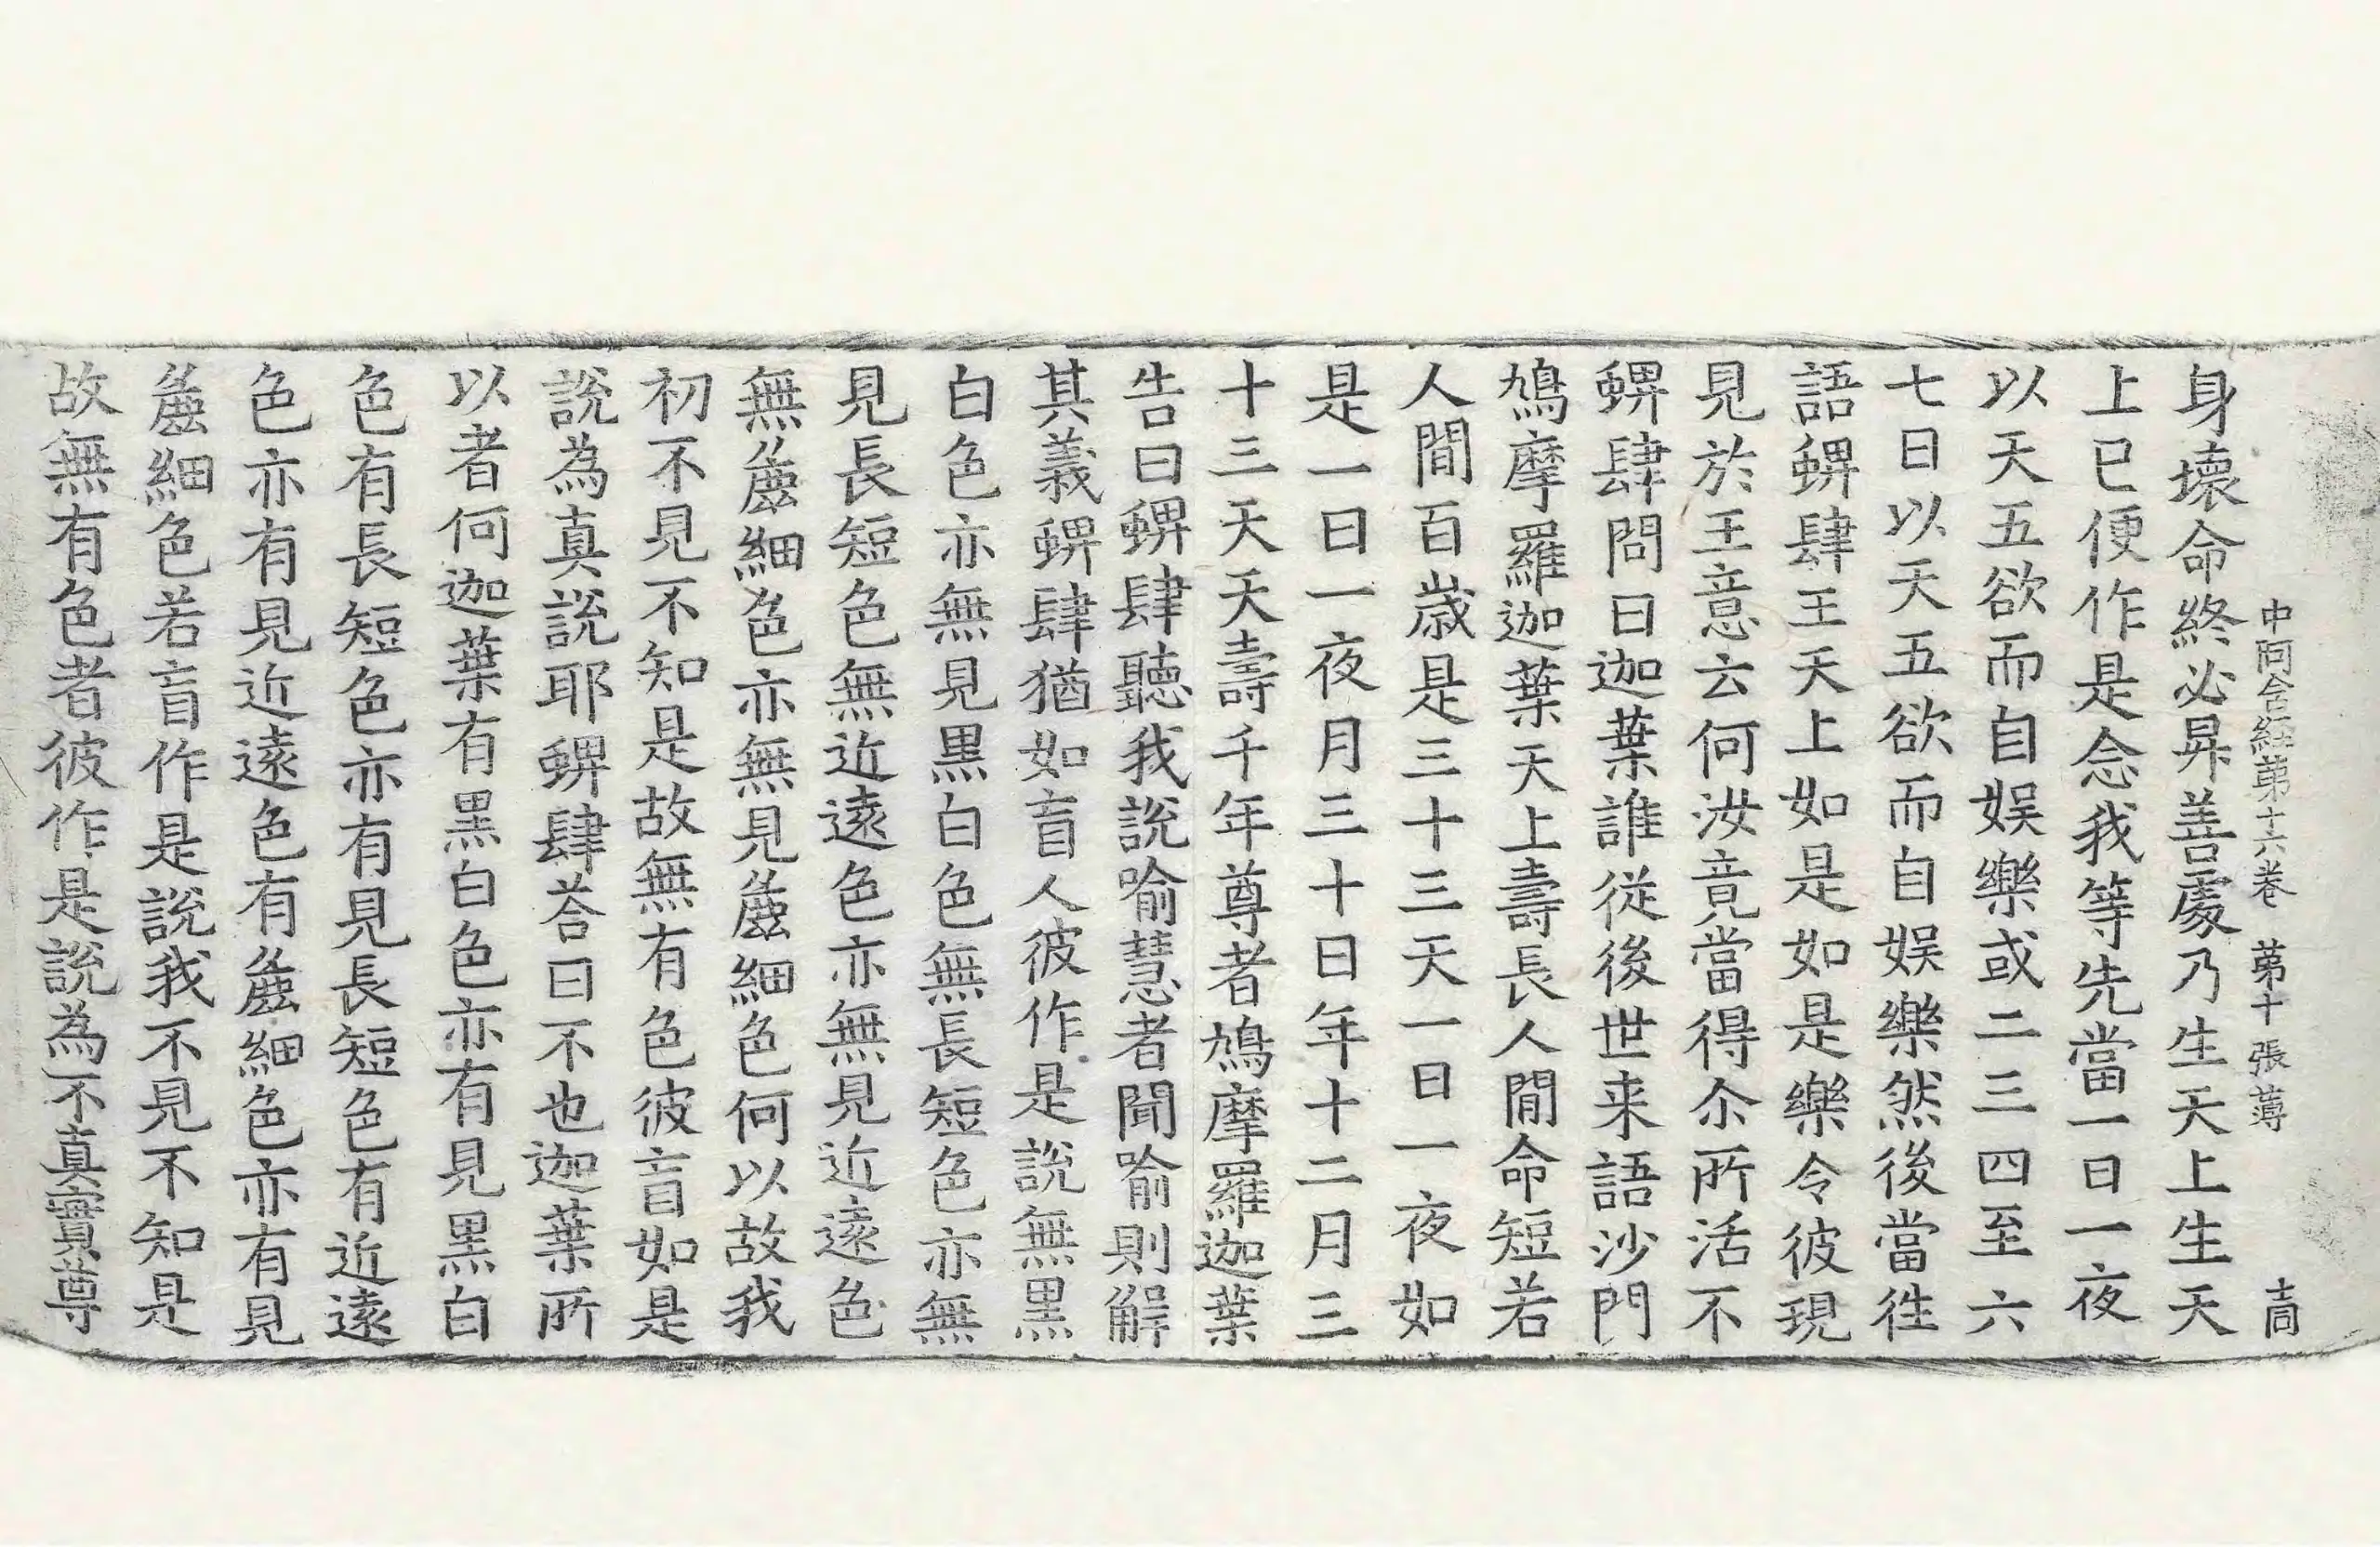 中阿含經苐十六卷　苐十張　薄　啚
身壞命終必昇善處乃生天上生天
上已便作是念我等先當一日一夜
以天五欲而自娛樂或二三四至六
七日以天五欲而自娛樂然後當徃
語蜱肆王天上如是如是樂令彼現
見於王意云何汝竟當得尒所活不
蜱肆問曰迦葉誰從後世来語沙門
鳩摩羅迦葉天上壽長人間命短若
人間百歲是三十三天一日一夜如
是一日一夜月三十日年十二月三
十三天天壽千年尊者鳩摩羅迦葉
告曰蜱肆聽我說喻慧者聞喻則解
其義蜱肆猶如盲人彼作是說無黑
白色亦無見黑白色無長短色亦無
見長短色無近遠色亦無見近遠色
無麁細色亦無見麁細色何以故我
初不見不知是故無有色彼盲如是
說為真說耶蜱肆荅曰不也迦葉所
以者何迦葉有黑白色亦有見黑白
色有長短色亦有見長短色有近遠
色亦有見近遠色有麁細色亦有見
麁細色若盲作是說我不見不知是
故無有色者彼作是說為不真實尊